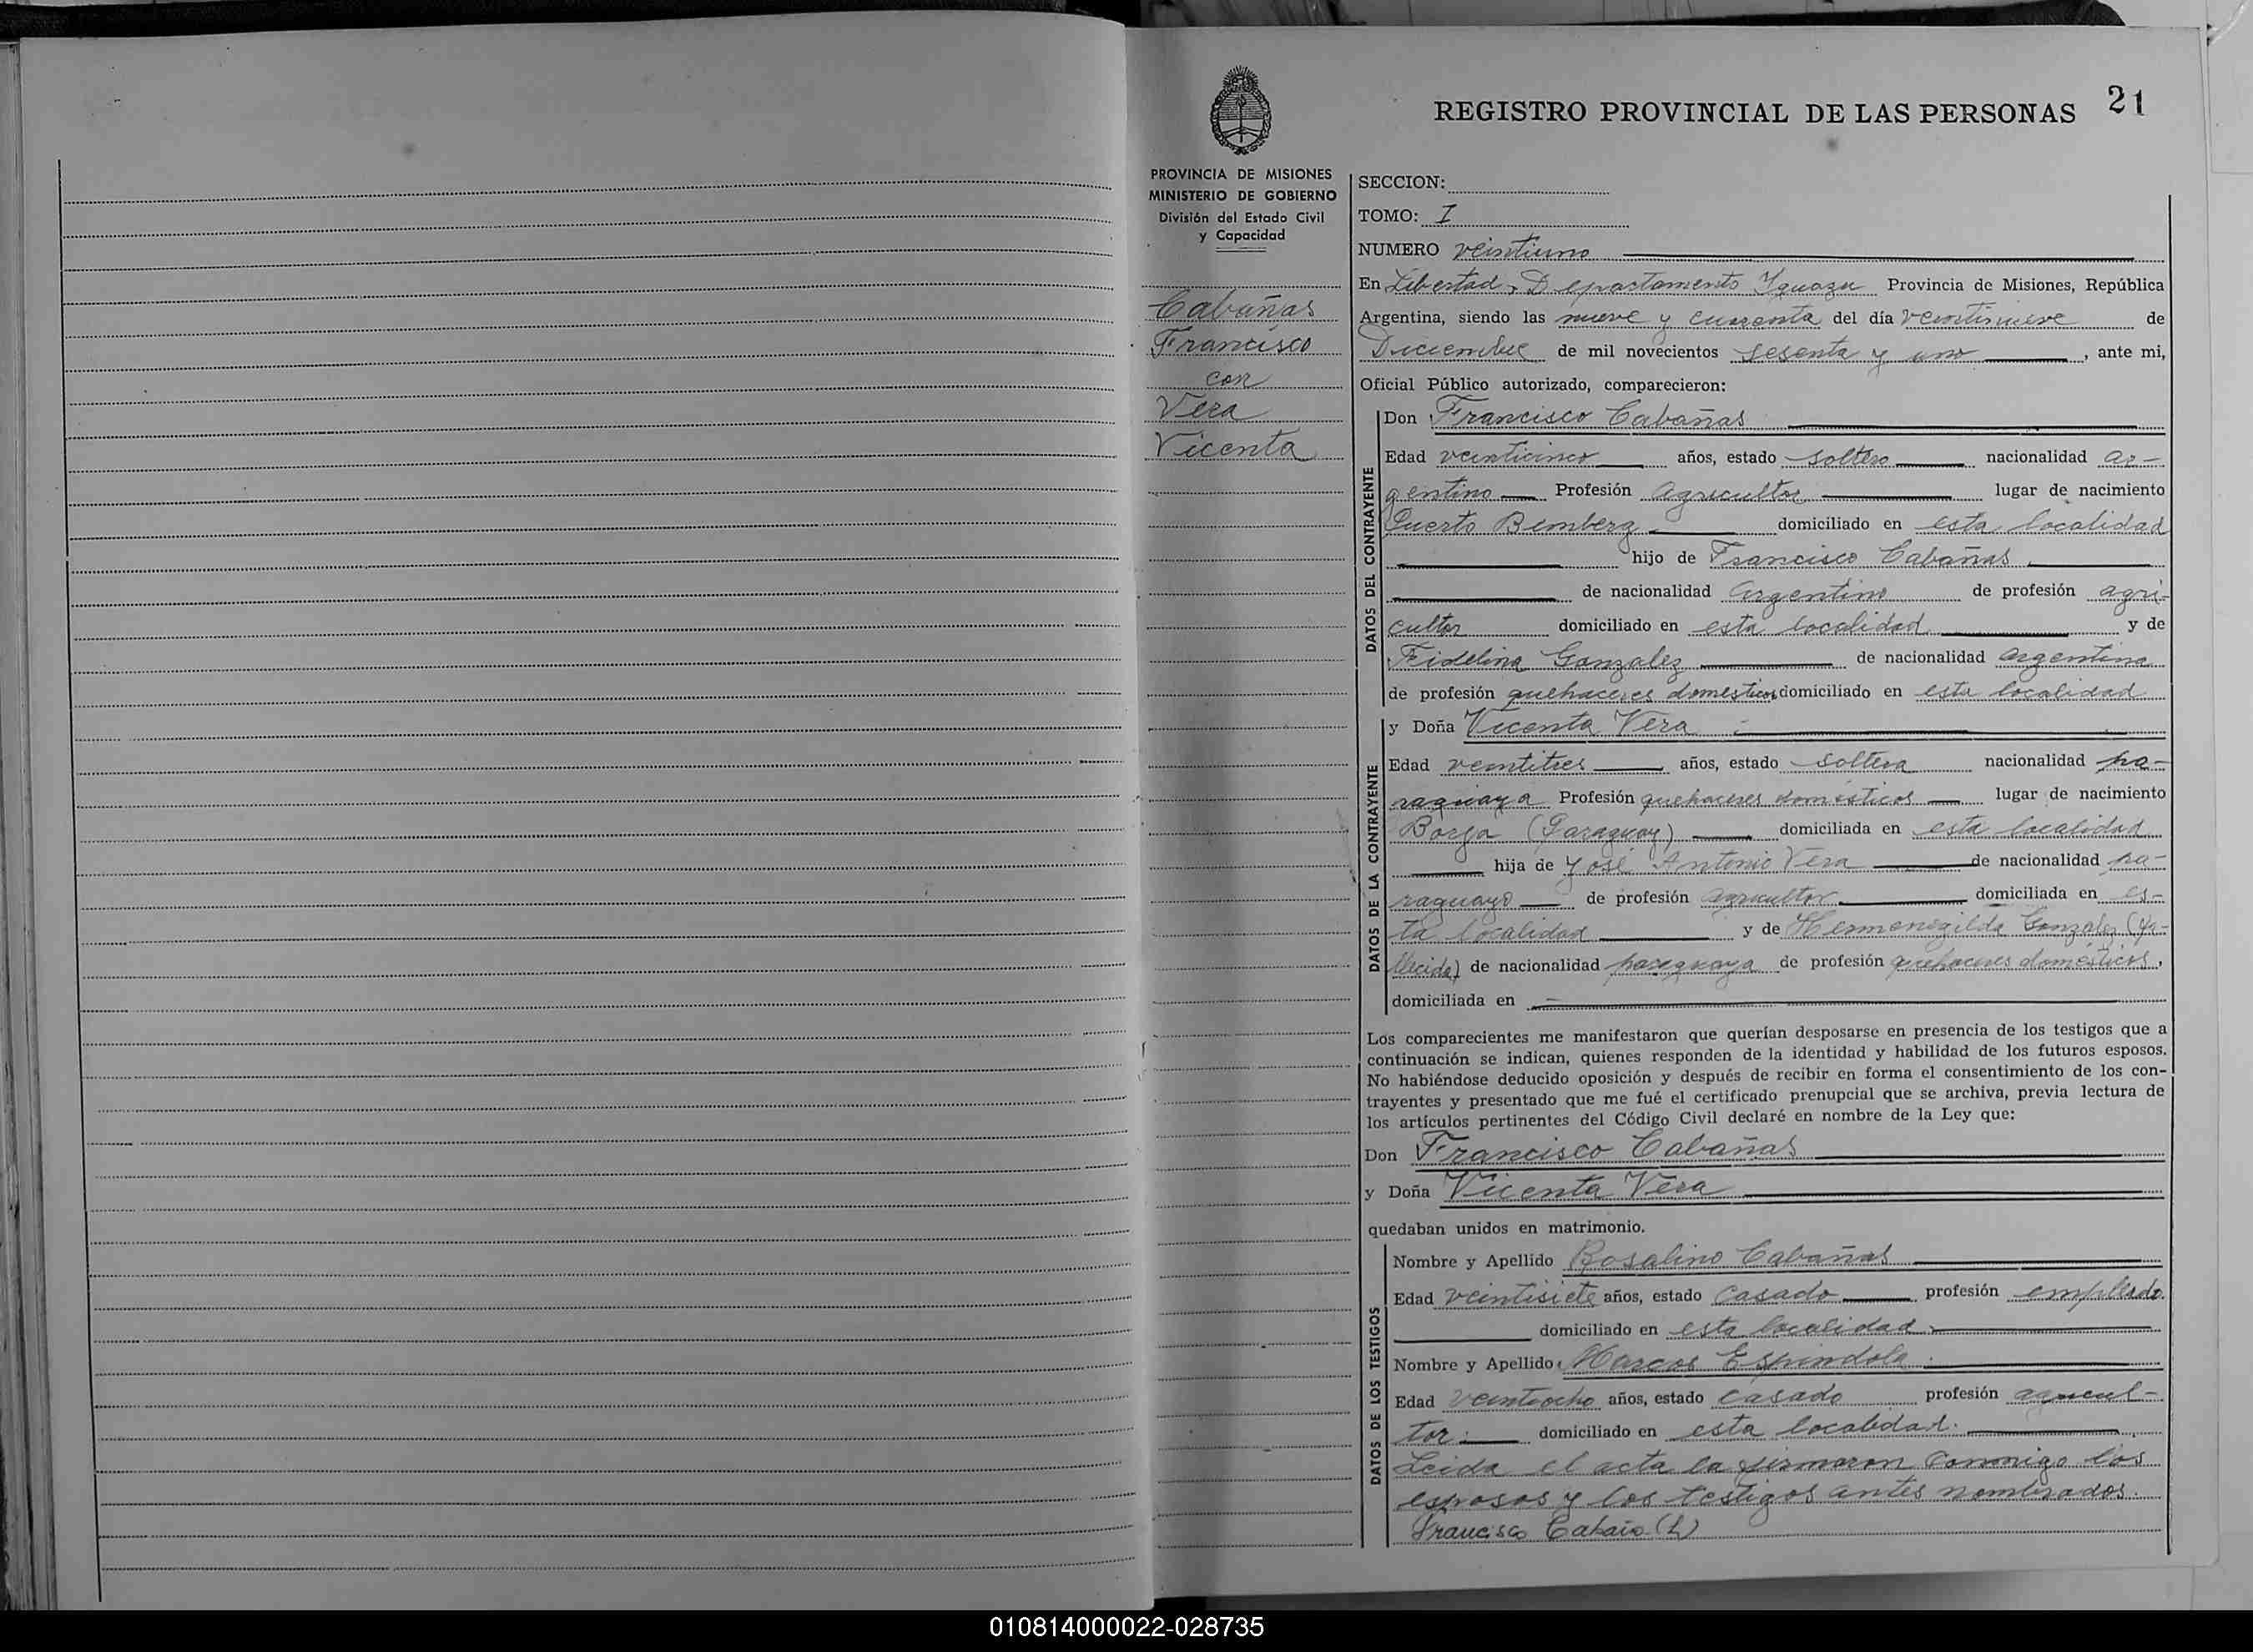 REGISTRO PROVINCIAL DE LAS PERSONAS 21
PROVINCIA DE MISIONES
MINISTERIO DE GOBIERNO
División del Estado Civil
y Capacidad
Cabañas
Francisco
con
Vera
Vicenta
SECCION:
TOMO: I
NUMERO veintiuno
En Libertad, Departamento Iguazu Provincia de Misiones, República
Argentina, siendo las nueve y cuarenta del día veintinueve de
Diciembre de mil novecientos sesenta y uno, ante mi,
Oficial Público autorizado, comparecieron:
DATOS DEL CONTRAYENTE
Don Francisco Cabañas
Edad veinticinco años, estado soltero nacionalidad ar-
gentino Profesión agricultor lugar de nacimiento
Puerto Bemberg domiciliado en esta localidad
hijo de Francisco Cabañas
de nacionalidad argentino de profesión agri-
cultor domiciliado en esta localidad y de
Fidelina Gonzalez de nacionalidad argentina
de profesión quehaceres domesticos domiciliado en esta localidad
DATOS DE LA CONTRAYENTE
y Doña Vicenta Vera
Edad veintitres años, estado soltera nacionalidad pa-
raguaya Profesión quehaceres domésticos lugar de nacimiento
Borja (Paraguay) domiciliada en esta localidad
hija de José Antonio Vera de nacionalidad pa-
raguayo de profesión agricultor domiciliada en es-
ta localidad y de Hermenegilda Gonzalez (fa-
llecida) de nacionalidad paraguaya de profesión quehaceres domésticos,
domiciliada en
Los comparecientes me manifestaron que querían desposarse en presencia de los testigos que a
continuación se indican, quienes responden de la identidad y habilidad de los futuros esposos.
No habiéndose deducido oposición y después de recibir en forma el consentimiento de los con-
trayentes y presentado que me fué el certificado prenupcial que se archiva, previa lectura de
los artículos pertinentes del Código Civil declaré en nombre de la Ley que:
Don Francisco Cabañas
y Doña Vicenta Vera
quedaban unidos en matrimonio.
DATOS DE LOS TESTIGOS
Nombre y Apellido Rosalino Cabañas
Edad veintisiete años, estado casado profesión empleado
domiciliado en esta localidad
Nombre y Apellido Marcos Espindola
Edad veintiocho años, estado casado profesión agricul-
tor domiciliado en esta localidad.
Leida el acta la firmaron conmigo los
esposos y los testigos antes nombrados.
Francisco (h)
010814000022-028735